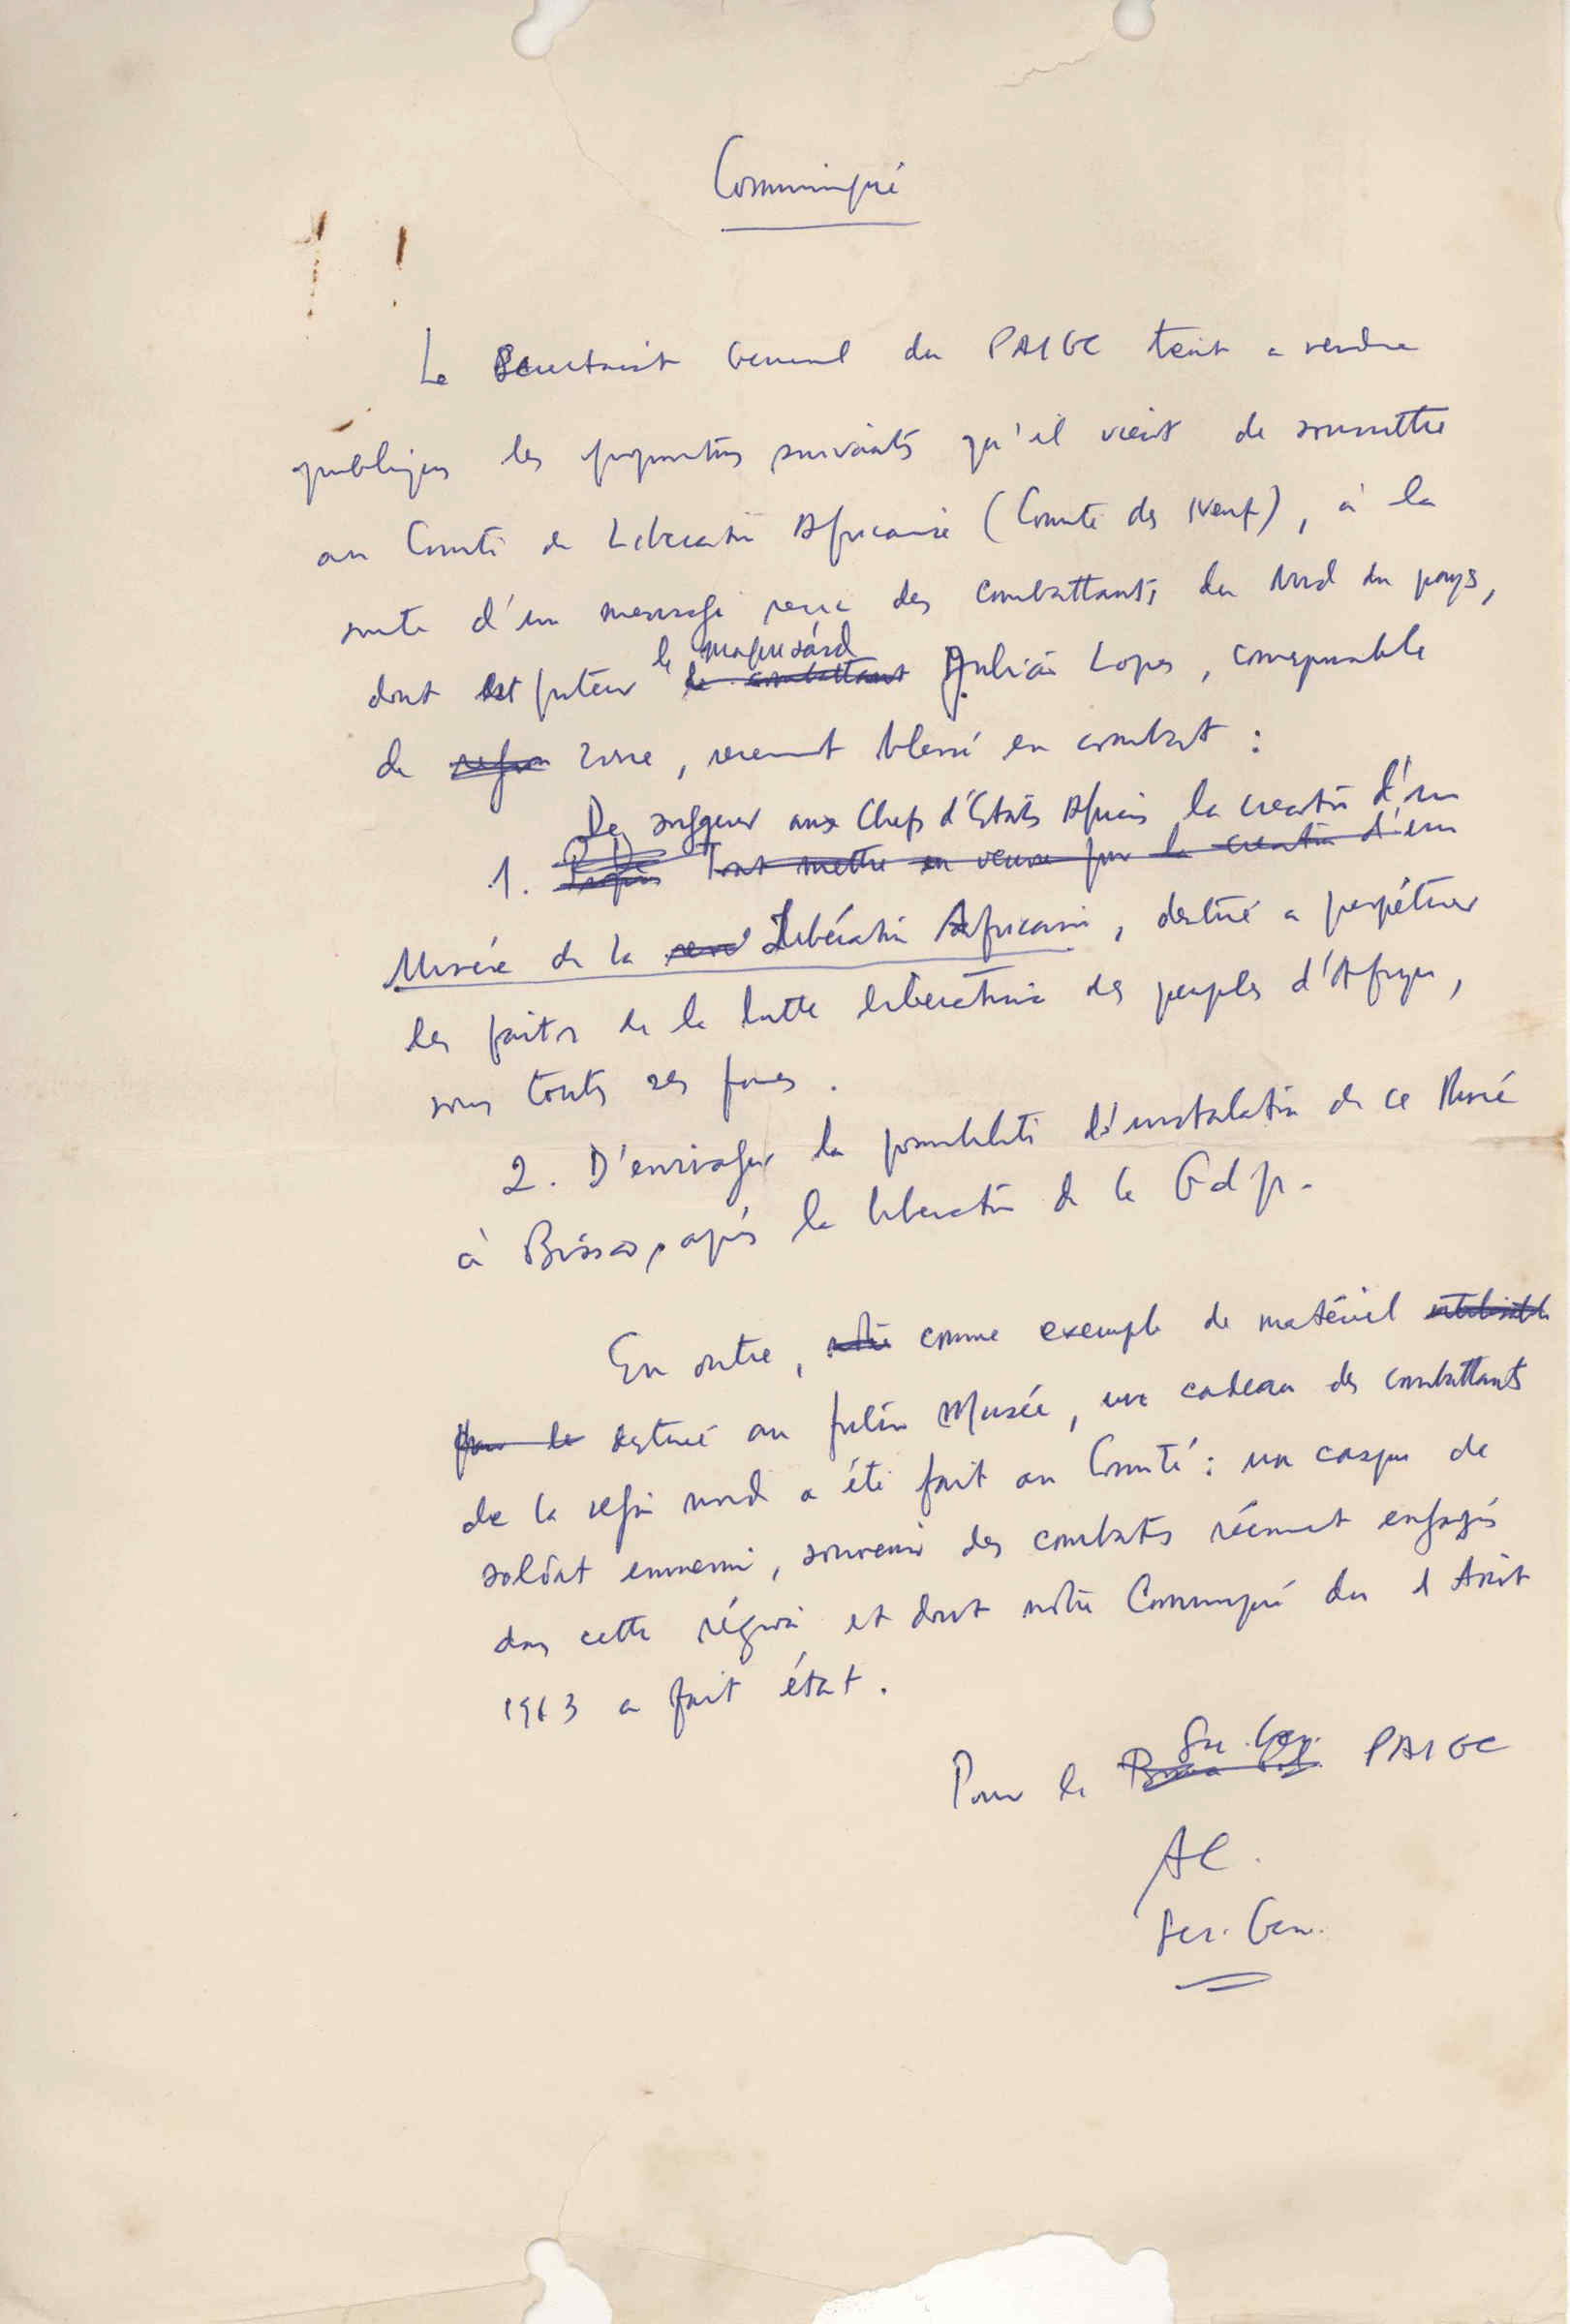 Communiqué
Le Secretariat General du PAIGC tient a rendre
publiques les propositions suivantes qu'il vient de soumettre
au Comité de Liberation Africaine (Comité des Neuf), à la
suite d'un message reçu des combattants du Nord du pays,
dont est porteur le maquisard Julião Lopes, coresponsable
de zone, recemment blessé en combat :
De suggerer aux Chefs d'Etats Africains la creation d'un
1. Tout mettre en oeuvre pour la creation d'un
Musée de la Libération Africaine, destiné a perpétuer
les faits de la lutte liberatrice des peuples d'Afrique,
sous toutes ses formes.
2. D'envisager la possibilité d'installation de ce Musée
à Bissao, après la liberation de la Gdp.
En outre, comme exemple de matériel
pour le destiné au futur Musée, un cadeau des combattants
de la region nord a été fait au Comité : un casque de
soldat ennemi, souvenir des combats récemment engagés
dans cette région et dont notre Communiqué du 1 Août
1963 a fait état.
Pour le Sec. Gen. PAIGC
AC.
Sec. Gen.